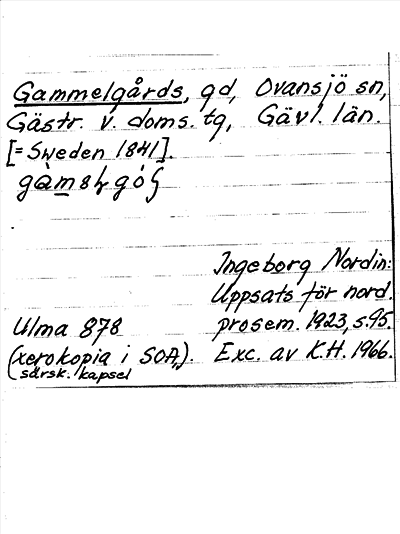 Gammelgårds, gd, Ovansjö sn,
Gästr. v. doms. tg, Gävl. län.
[= Sweden 1841].
Ingeborg Nordin:
Uppsats för nord.
Ulma 878 prosem. 1923, s. 95.
(xerokopia i SOA,). Exc. av K.H. 1966.
särsk. kapsel